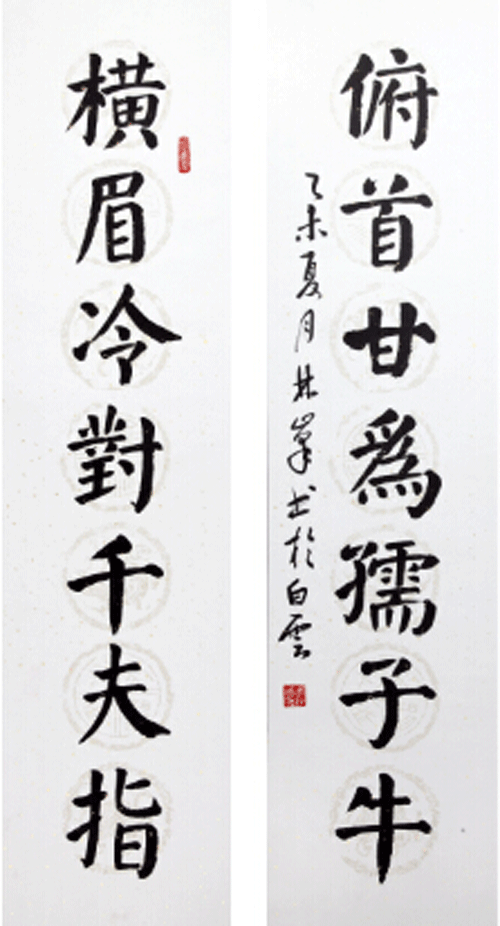 橫眉冷對千夫指
俯首甘爲孺子牛
乙未夏月林峯书於白雲